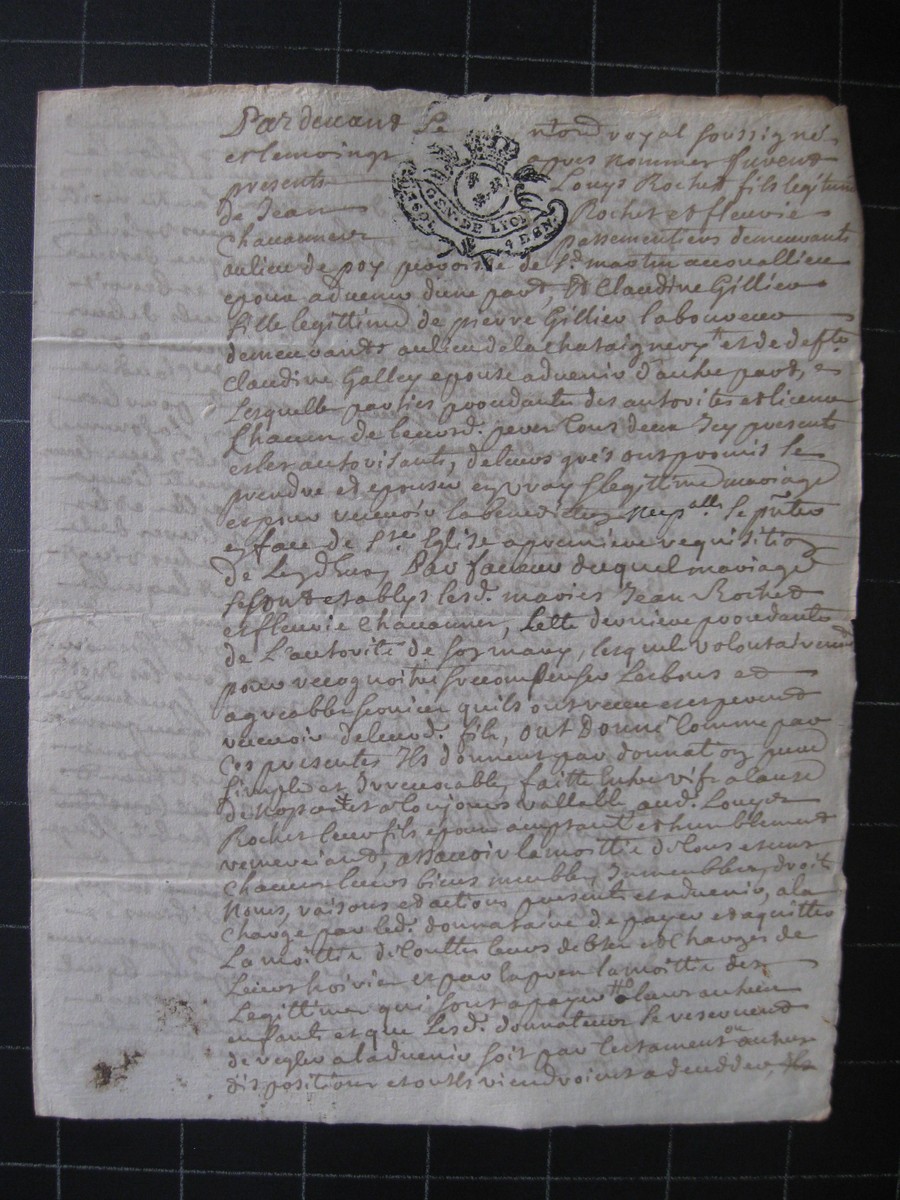 Pardevant le nore royal soussigné
et temoings apres nommes furent
presents Louys Rochet fils legitime
de Jean Rochet et fleurie
Chavannes passementiers demeurants
GEN. DE LYON
au lieu de poy paroisse de St. martin acoualieu
epoux advenir d'une part, Et Claudine Gillier
fille legittime de pierre Gillier laboureur
demeurants au lieu de la chataignery et de deffte
Claudine Galley epouse advenir d'autre part,
Lesquelles parties procedantes des autorites et licence
Chacun de leursd. peres tous deux Icy presents
et les autorisants, de leurs grés ont promis se
prendre et epouser en vray et legitime mariage
et pour recevoir la benediction nupalle se pnter
en face de Ste Eglise a premiere requisition
de L'un d'eux, En faveur duquel mariage
se sont etablys lesd. maries Jean Rochet
et fleurie Chavannes, cette derniere procedante
de L'autorité de son mary, lesquels volontairement
pour recognoitre et recompenser Les bons et
agreables services quils ont receu et esperent
recevoir de leurd. fils, ont donné Comme par
Ces presentes Ils donnent par donnation pure
simple et Irrevocable, faitte entre vifs a cause
de nopces et a toujours vallable, aud. Louys
Rochet leur fils epoux acceptant et humblement
remerciant, assavoir la moittié de tous et uns
chacuns leurs biens meubles, Immeubles, droits
Noms, raisons et actions presents et advenir, a la
charge par led. donnataire de payer et aquitter
La moittié de touttes leurs debtes et Charges de
Leurs hoiries et la moittié des
Legittimes qui sont a payer a leurs autres
enfants et que Lesd. donnateurs se reservent
de regler a l'advenir soit par testament ou autres
dispositions et ou Ils viendroient a deceder,